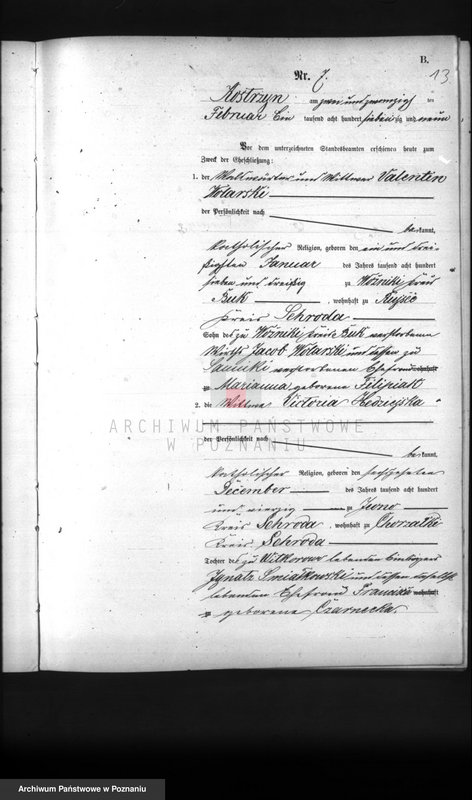 B.
Nr. 7.
13
Kostrzyn am zwei und zwanzigsten
Februar Ein tausend acht hundert siebenzig und neun
Vor dem unterzeichneten Standesbeamten erschienen heute zum
Zweck der Eheschließung:
1. der und Wittwer Valentin
Wolarski
der Persönlichkeit nach
bekannt,
katholischer Religion, geboren den ein und drei-
ßigsten Januar des Jahres tausend acht hundert
sieben und dreißig zu Woźniki Kreis
Buk, wohnhaft zu
Kreis Schroda
Sohn des zu Woźniki Kreis Buk verstorbenen
Wirths Jacob Wolarski und dessen zu
verstorbenen Ehefrau wohnhaft
zu Marianna, geborene Filipiak
2. die Wittwe Victoria
ARCHIWUM PAŃSTWOWE
W POZNANIU
der Persönlichkeit nach
bekannt,
katholischer Religion, geboren den sechszehnten
December des Jahres tausend acht hundert
und vierzig zu
Kreis Schroda, wohnhaft zu
Kreis Schroda
Tochter des zu lebenden
Ignatz und dessen daselbst
lebenden Ehefrau wohnhaft
zu geborene Czarnecka.
Archiwum Państwowe w Poznaniu